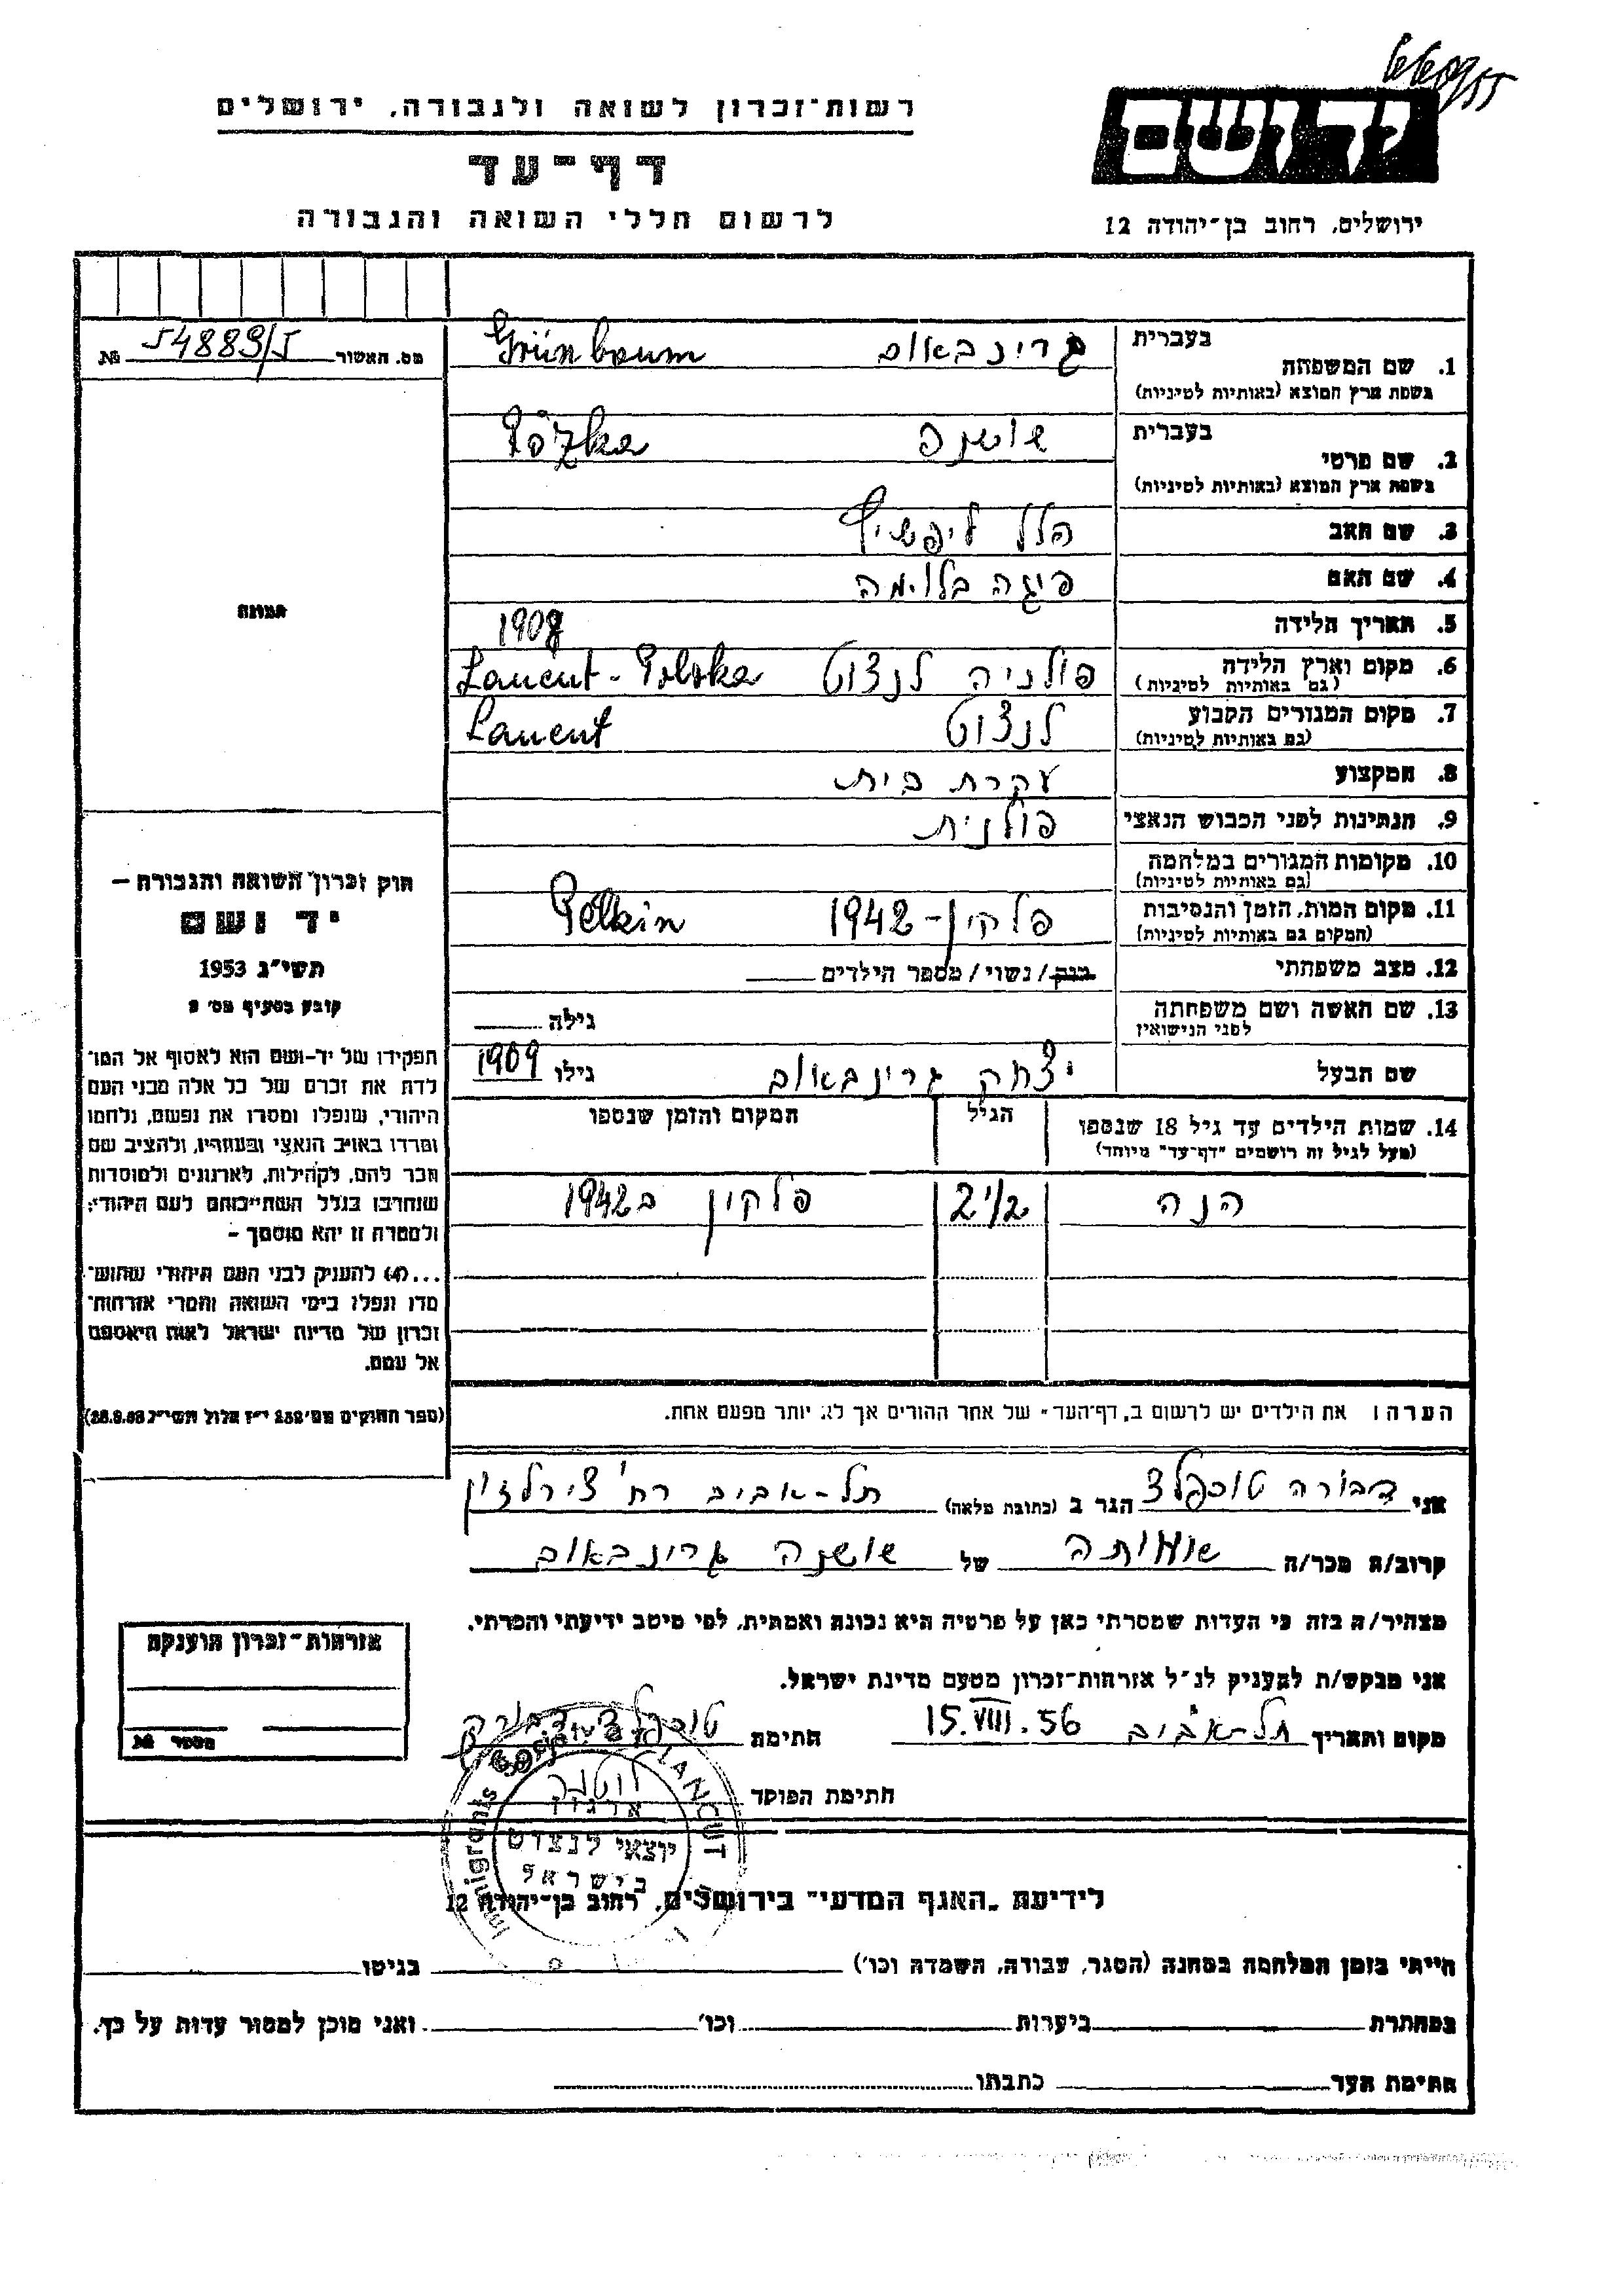 רשות־זכרון לשואה ולגבורה, ירושלים
דף־עד
לרשום חללי השואה והגבורה
יד ושם
ירושלים, רחוב בן־יהודה 12
מס. האשור 54889/5 №
1. שם המשפחה בעברית גרינבאום Grünbaum
בשפת ארץ המוצא (באותיות לטיניות)
2. שם פרטי בעברית שושנה Różka
בשפת ארץ המוצא (באותיות לטיניות)
3. שם האב הלל ליפשיץ
4. שם האם פיגה בלוימה
5. תאריך הלידה 1908
6. מקום וארץ הלידה פולניה לנצוט Lancut - Polska
(גם באותיות לטיניות)
7. מקום המגורים הקבוע לנצוט Lancut
(גם באותיות לטיניות)
8. המקצוע עקרת בית
9. הנתינות לפני הכבוש הנאצי פולנית
10. מקומות המגורים במלחמה
(גם באותיות לטיניות)
11. מקום המות, הזמן והנסיבות פלקין - 1942 Pelkin
(המקום גם באותיות לטיניות)
12. מצב משפחתי רווק / נשוי / מספר הילדים
13. שם האשה ושם משפחתה גילה
לפני הנישואין
שם הבעל יצחק גרינבאום גילו 1909
14. שמות הילדים עד גיל 18 שנספו הגיל המקום והזמן שנספו
(מעל לגיל זה רושמים "דף־עד" מיוחד)
הנה 2 1/2 פלקין ב 1942
הערה: את הילדים יש לרשום ב„דף־העד" של אחד ההורים אך לא יותר מפעם אחת.
תמונה
חוק זכרון השואה והגבורה –
יד ושם
תשי"ג 1953
קובע בסעיף מס' 2
תפקידו של יד־ושם הוא לאסוף אל המו־
לדת את זכרם של כל אלה מבני העם
היהודי, שנפלו ומסרו את נפשם, נלחמו
ומרדו באויב הנאצי ובעוזריו, ולהציב שם
וזכר להם, לקהילות, לארגונים ולמוסדות
שנחרבו בגלל השתייכותם לעם היהודי;
ולמטרה זו יהא מוסמך –
...(4) להעניק לבני העם היהודי שהוש־
מדו ונפלו בימי השואה והמרי אזרחות־
זכרון של מדינת ישראל לאות היאספם
אל עמם.
(ספר החוקים מס' 132 י"ז אלול תשי"ג 28.8.53)
אני דבורה טוכפלד הגר ב (כתובת מלאה) תל-אביב רח' צירלזון
קרוב/ה מכר/ה אחותה של שושנה גרינבאום
מצהיר/ה בזה כי העדות שמסרתי כאן על פרטיה היא נכונה ואמתית, לפי מיטב ידיעתי והכרתי.
אני מבקש/ת להעניק לנ"ל אזרחות־זכרון מטעם מדינת ישראל.
מקום ותאריך תל-אביב 15.VIII.56 חתימת טוכפלד דבורה
חתימת הפוקד
אזרחות־זכרון הוענקה
מספר №
Immigrants LANCUT
ארגון
יוצאי לנצוט
בישראל
לידיעת „האגף המדעי" בירושלים, רחוב בן־יהודה 12
הייתי בזמן המלחמה במחנה (הסגר, עבודה, השמדה וכו') בגיטו
במחתרת ביערות וכו' ואני מוכן למסור עדות על כך.
חתימת העד כתבתו